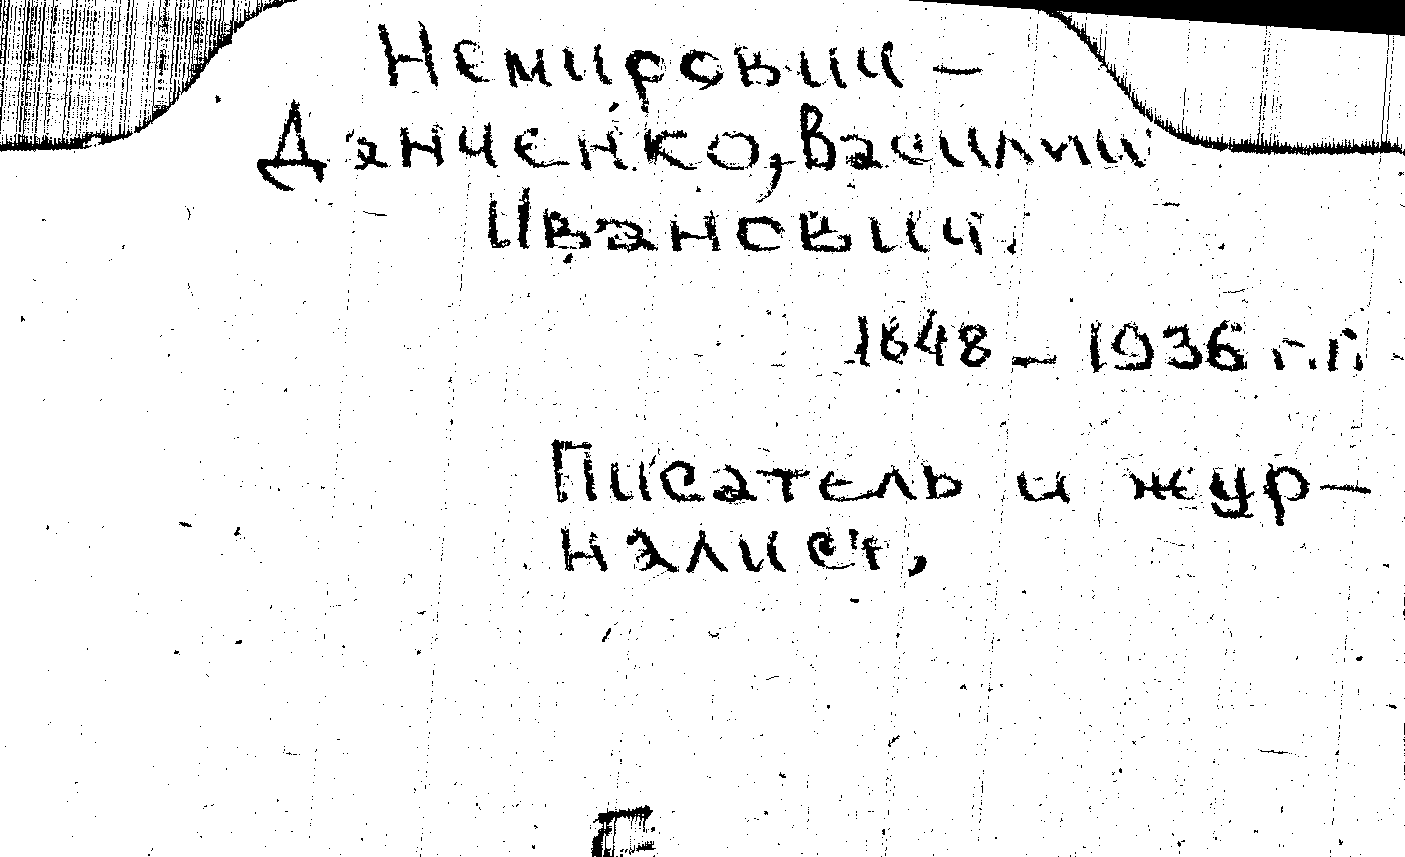 Немирович –
Данченко, Василий
Иванович.
1848 – 1936 г.г.
Писатель и жур-
налист,